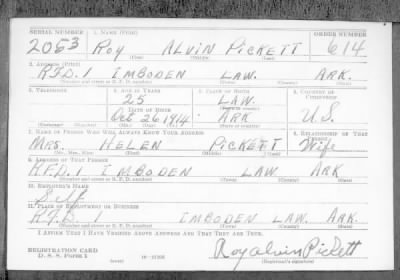 SERIAL NUMBER 1. NAME (Print) ORDER NUMBER
2053 ROY ALVIN PICKETT 614
(First) (Middle) (Last)
2. ADDRESS (Print)
R.F.D. 1 IMBODEN LAW. ARK.
(Number and street or R. F. D. number) (Town) (County) (State)
3. TELEPHONE 4. AGE IN YEARS 5. PLACE OF BIRTH 6. COUNTRY OF CITIZENSHIP
25 LAW.
DATE OF BIRTH (Town or county)
Oct 26 1914 ARK U.S.
(Exchange) (Number) (Mo.) (Day) (Yr.) (State or country)
7. NAME OF PERSON WHO WILL ALWAYS KNOW YOUR ADDRESS 8. RELATIONSHIP OF THAT PERSON
MRS. HELEN PICKETT Wife
(Mr., Mrs., Miss) (First) (Middle) (Last)
9. ADDRESS OF THAT PERSON
R.F.D. 1 IMBODEN LAW ARK
(Number and street or R. F. D. number) (Town) (County) (State)
10. EMPLOYER'S NAME
Self
11. PLACE OF EMPLOYMENT OR BUSINESS
R.F.D. 1 IMBODEN LAW. ARK.
(Number and street or R. F. D. number) (Town) (County) (State)
I AFFIRM THAT I HAVE VERIFIED ABOVE ANSWERS AND THAT THEY ARE TRUE.
REGISTRATION CARD
D. S. S. FORM 1 Roy Alvin Pickett
(Registrant's signature)